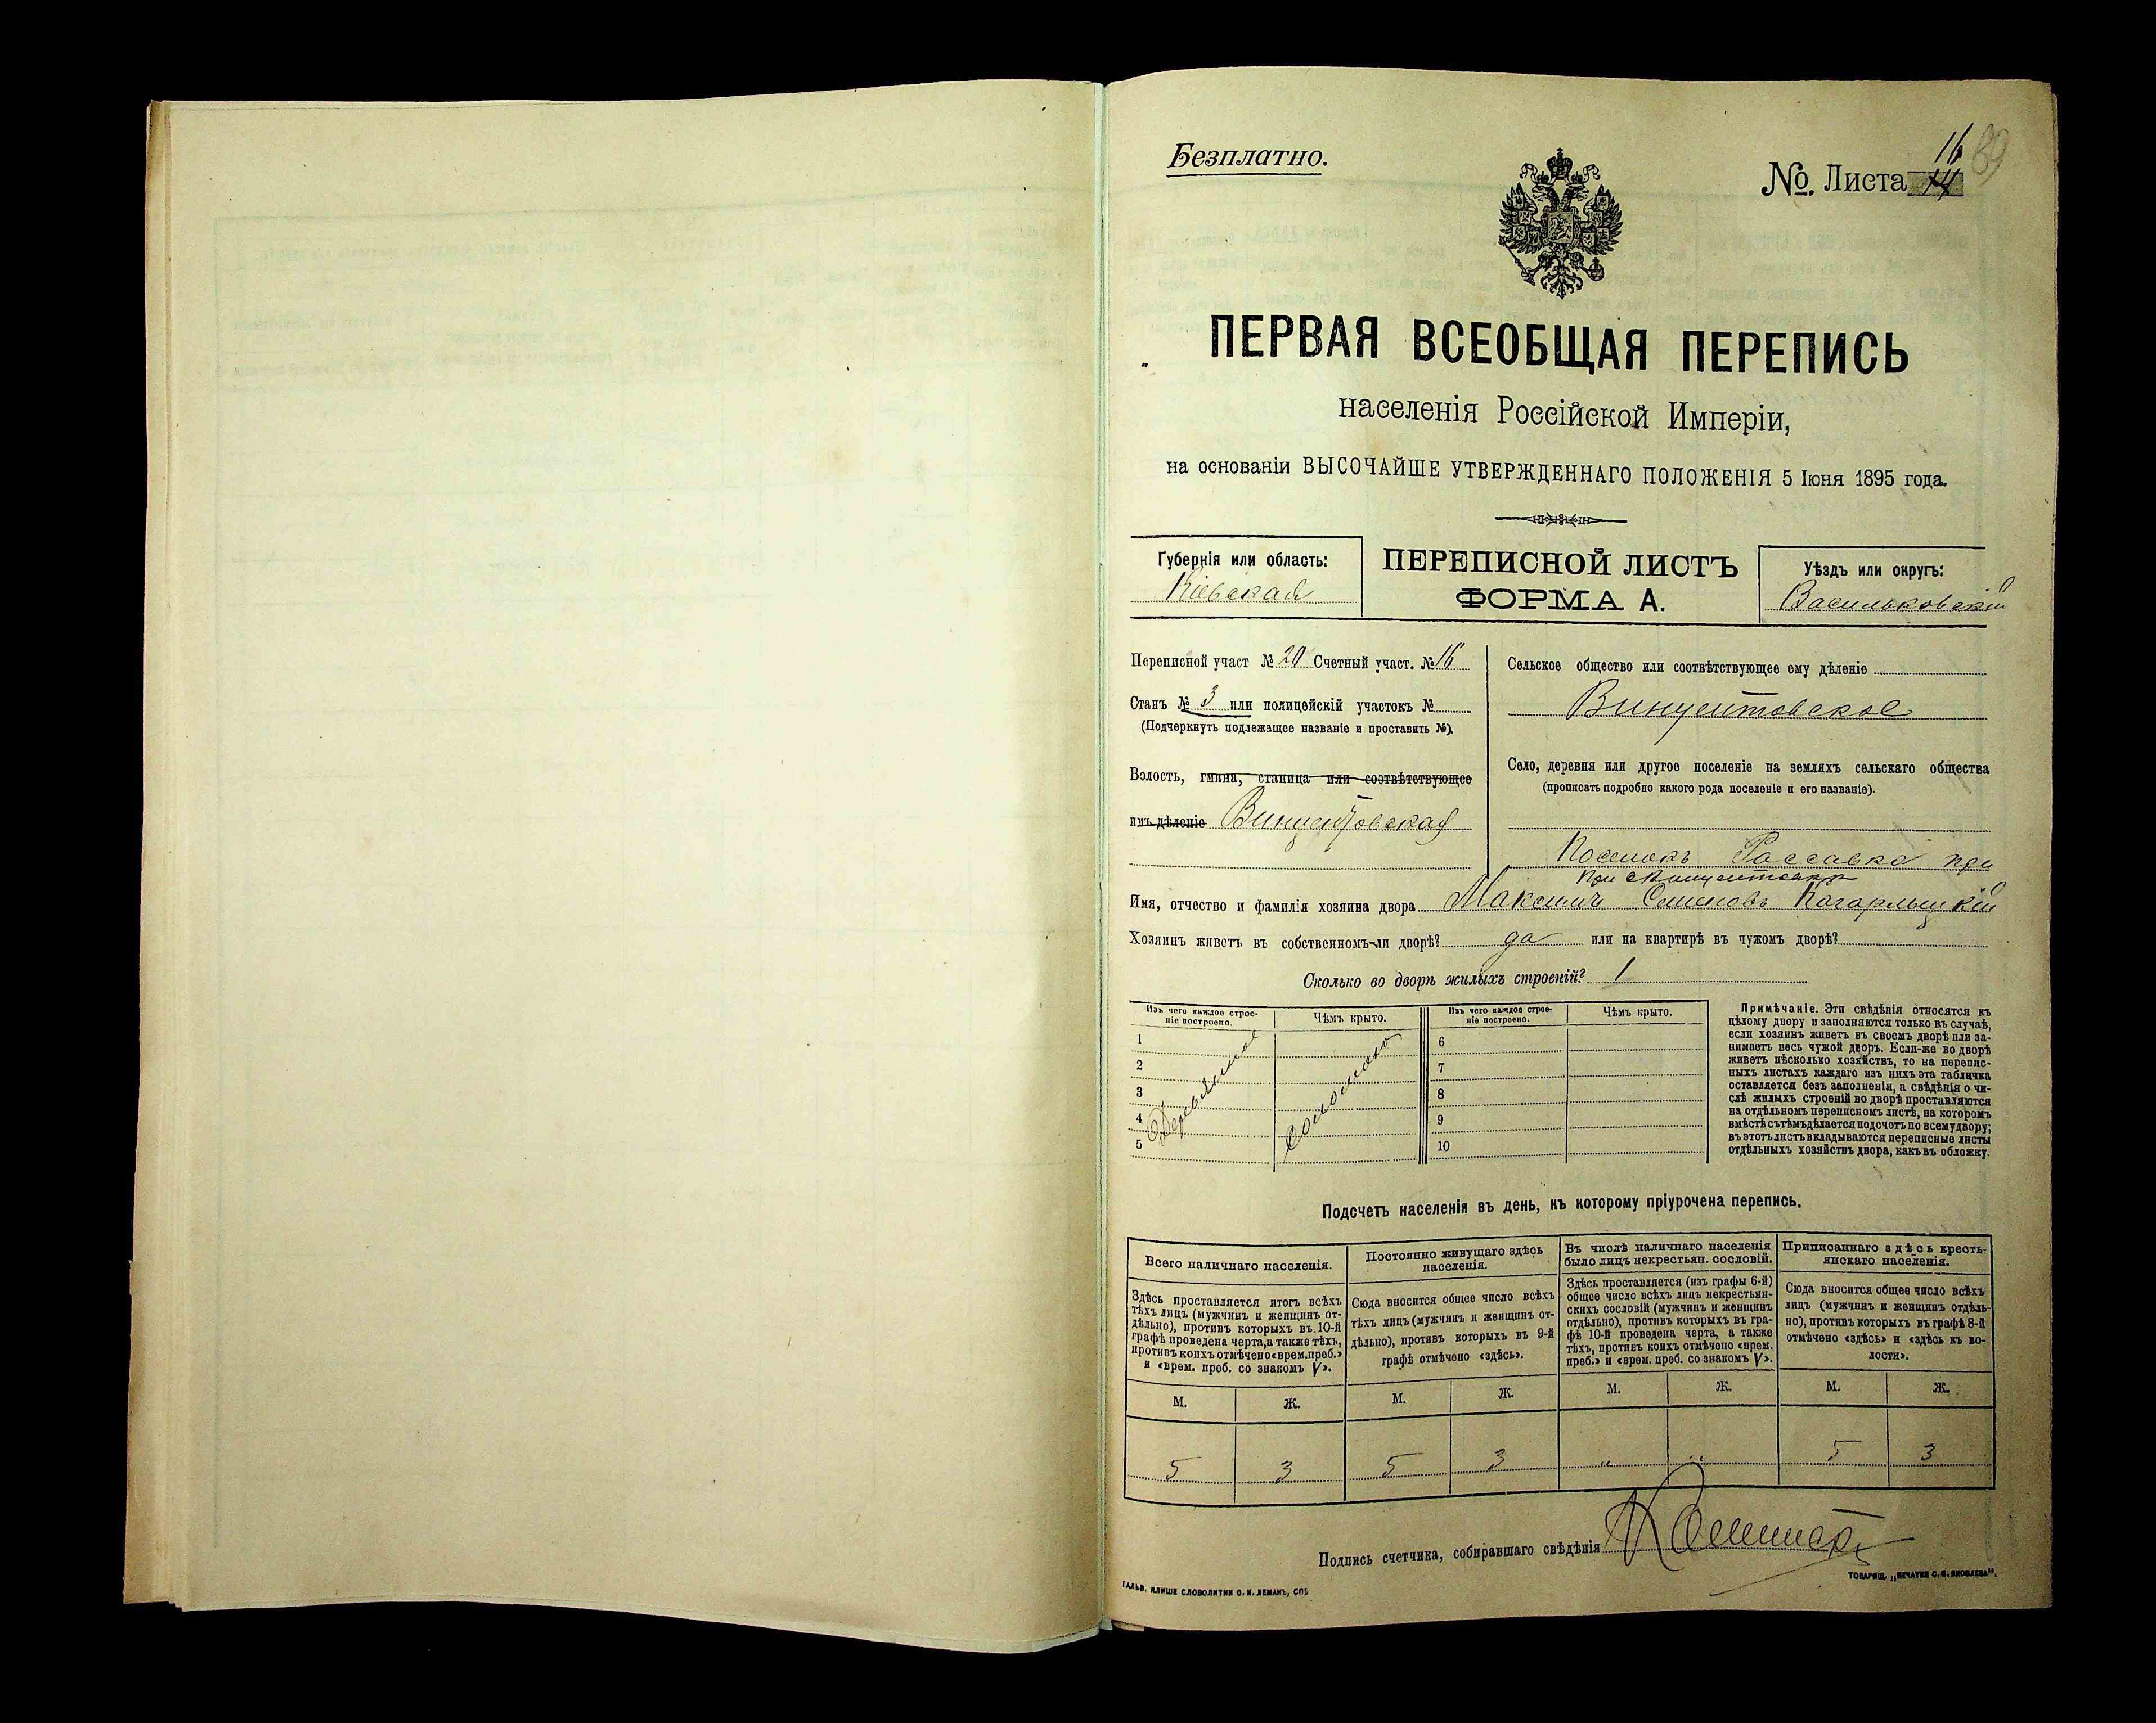 Безплатно.
16 89
№. Листа 14
ПЕРВАЯ ВСЕОБЩАЯ ПЕРЕПИСЬ
населенія Россійской Имперіи,
на основаніи ВЫСОЧАЙШЕ УТВЕРЖДЕННАГО ПОЛОЖЕНІЯ 5 Іюня 1895 года.
Губернія или область:
Кіевская
ПЕРЕПИСНОЙ ЛИСТЪ
ФОРМА А.
Уѣздъ или округъ:
Васильковскій
Переписной участ № 20 Счетный участ. № 16
Станъ № 3 или полицейскій участокъ №
(Подчеркнуть подлежащее названіе и проставить №).
Волость, гмина, станица или соотвѣтствующее
имъ дѣленіе Винцентовская
Сельское общество или соотвѣтствующее ему дѣленіе
Винцентовское
Село, деревня или другое поселеніе на земляхъ сельскаго общества
(прописать подробно какого рода поселеніе и его названіе).
Поселокъ Россавка при
при
Имя, отчество и фамилія хозяина двора Максимъ Семеновъ Кагарлыцкій
Хозяинъ живетъ въ собственномъ-ли дворѣ? да или на квартирѣ въ чужомъ дворѣ?
Сколько во дворѣ жилыхъ строеній? 1
Изъ чего каждое строе-
ніе построено.
Чѣмъ крыто.
1
2
3
4
5
Деревянное
соломою
Изъ чего каждое строе-
ніе построено.
Чѣмъ крыто.
6
7
8
9
10
Примѣчаніе. Эти свѣдѣнія относятся къ
цѣлому двору и заполняются только въ случаѣ,
если хозяинъ живетъ въ своемъ дворѣ или за-
нимаетъ весь чужой дворъ. Если-же во дворѣ
живетъ нѣсколько хозяйствъ, то на перепис-
ныхъ листахъ каждаго изъ нихъ эта табличка
оставляется безъ заполненія, а свѣдѣнія о чи-
слѣ жилыхъ строеній во дворѣ проставляются
на отдѣльномъ переписномъ листѣ, на которомъ
вмѣстѣ съ тѣмъ дѣлается подсчетъ по всему двору;
въ этотъ листъ вкладываются переписные листы
отдѣльныхъ хозяйствъ двора, какъ въ обложку.
Подсчетъ населенія въ день, къ которому пріурочена перепись.
Всего наличнаго населенія.
Здѣсь проставляется итогъ всѣхъ
тѣхъ лицъ (мужчинъ и женщинъ от-
дѣльно), противъ которыхъ въ 10-й
графѣ проведена черта, а также тѣхъ,
противъ коихъ отмѣчено «врем. преб.»
и «врем. преб. со знакомъ V».
М. Ж.
5 3
Постоянно живущаго здѣсь
населенія.
Сюда вносится общее число всѣхъ
тѣхъ лицъ (мужчинъ и женщинъ от-
дѣльно), противъ которыхъ въ 9-й
графѣ отмѣчено «здѣсь».
М. Ж.
5 3
Въ числѣ наличнаго населенія
было лицъ некрестьян. сословій.
Здѣсь проставляется (изъ графы 6-й)
общее число всѣхъ лицъ некрестьян-
скихъ сословій (мужчинъ и женщинъ
отдѣльно), противъ которыхъ въ гра-
фѣ 10-й проведена черта, а также
тѣхъ, противъ коихъ отмѣчено «врем.
преб.» и «врем. преб. со знакомъ V».
М. Ж.
" "
Приписаннаго здѣсь кресть-
янскаго населенія.
Сюда вносится общее число всѣхъ
лицъ (мужчинъ и женщинъ отдѣль-
но), противъ которыхъ въ графѣ 8-й
отмѣчено «здѣсь» и «здѣсь къ во-
лости».
М. Ж.
5 3
Подпись счетчика, собиравшаго свѣдѣнія
ГАЛЬВ. КЛИШЕ СЛОВОЛИТНИ О. И. ЛЕМАНЪ, СПБ
ТОВАРИЩ. „ПЕЧАТНЯ С. П. ЯКОВЛЕВА".